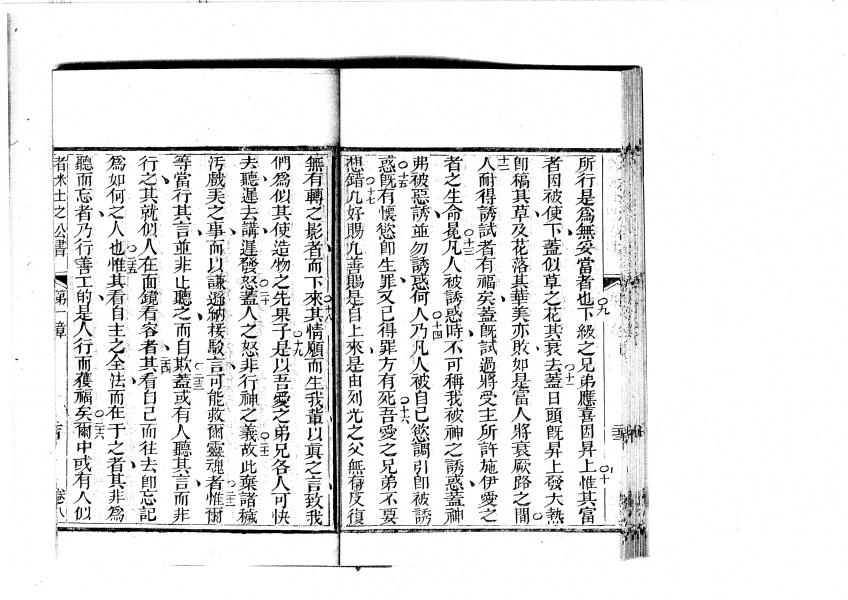 所行是為無妥當者也○九下級之兄弟應喜因昇上○十惟其富
者因被使下蓋似草之花其衰去○十一蓋日頭既昇上發大熱
即稿其草及花落其華美亦敗如是富人將衰厥路之間○
十二人耐得誘試者有福矣蓋既試過將受主所許施伊愛之
者之生命冕○十三凡人被誘惑時不可稱我被神之誘惑蓋神
弗被惡誘並勿誘惑何人○十四乃凡人被自己慾調引即被誘
惑○十五既有懷慾即生罪又已得罪方有死○十六吾愛之兄弟不要
想錯○十七凡好賜凡善賜是自上來是由列光之父無有反復
無有轉之影者○十八而下來其情願而生我輩以真之言致我
們為似其使造物之先果子○十九是以吾愛之弟兄各人可快
去聽遲去講遲發怒○二十蓋人之怒非行神之義○二一故此棄諸穢
汚戲芙之事而以謙遜納接駁言可能救爾靈魂者○二二惟爾
等當行其言並非止聽之而自欺○二三蓋或有人聽其言而非
行之其就似人在面鏡看容者○二四其看自己而往去即忘記
為如何之人也○二五惟其看自主之全法而在于之者其非為
聽而忘者乃行善工的是人行而獲福矣○二六爾中或有人似
者米士之公書 第一章 卷八